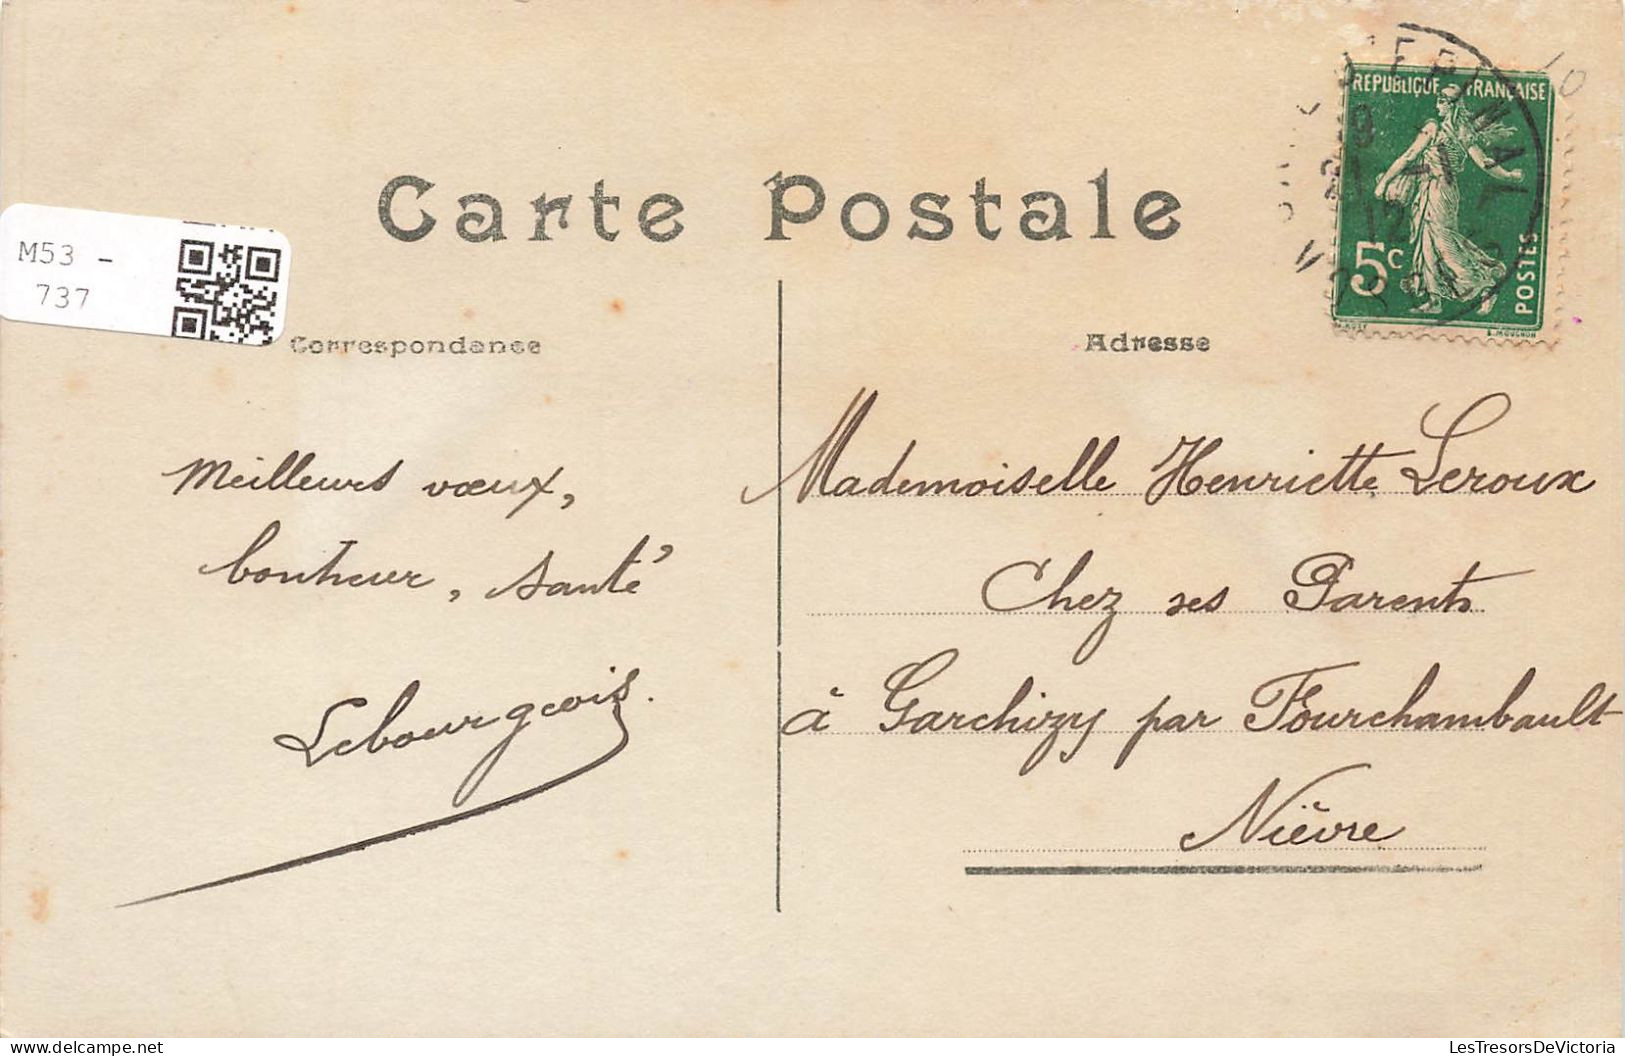 Carte Postale
M53 -
737
Correspondance
Adresse
REPUBLIQUE FRANÇAISE
5c
POSTES
EPINAL
12
VOSGES
10
Meilleurs vœux,
bonheur, santé
Lebourgeois.
Mademoiselle Henriette Leroux
Chez ses Parents
à Garchizy par Fourchambault
Nièvre
LesTresorsDeVictoria